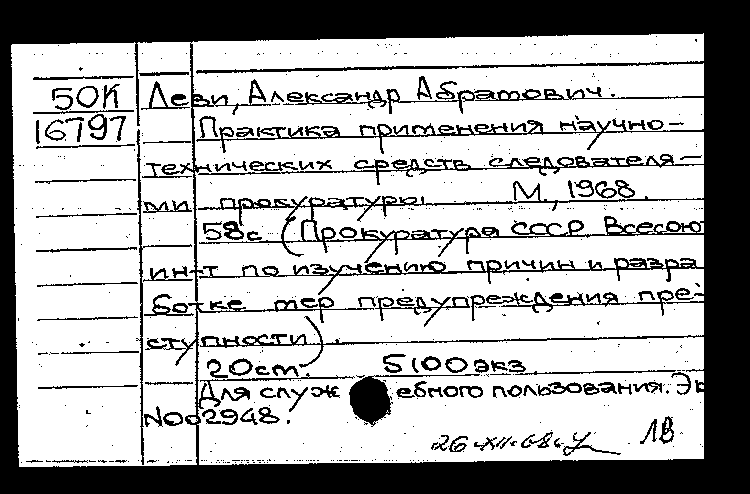 50К Леви, Александр Абрамович.
16797 Практика применения научно-
технических средств следователя-
ми прокуратуры М., 1968.
58с (Прокуратура СССР Всесоюз
ин-т по изучению причин и разра
ботке мер предупреждения пре-
ступности).
20см. 5100экз.
Для служебного пользования. Эк
No02948.
26.XII.68г. 1В